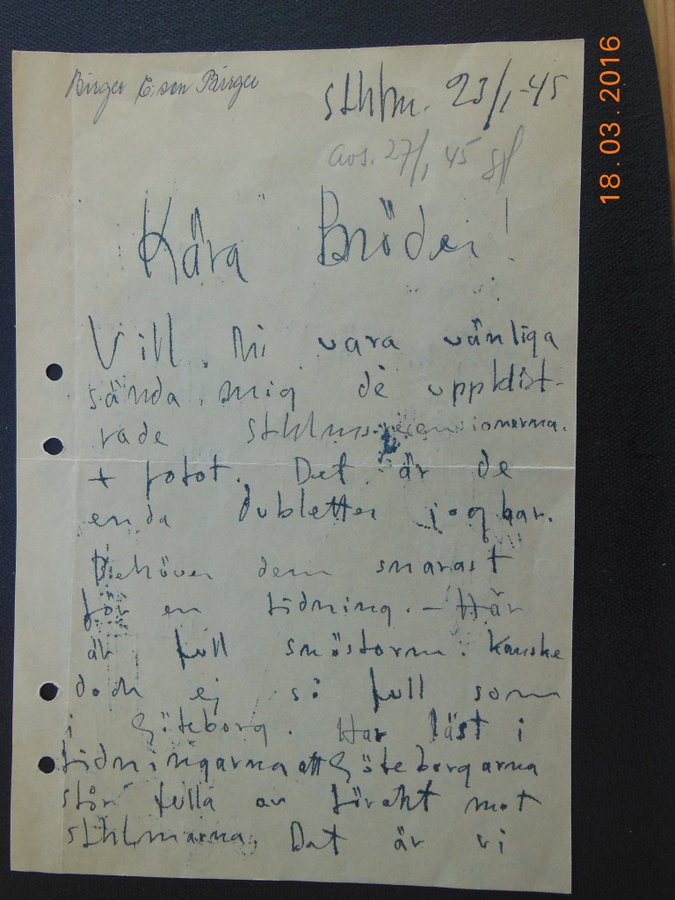 Birger E:son Birger
Sthlm. 23/1-45
avs. 27/1 45
Kära Bröder!
Vill Ni vara vänliga
sända mig de uppklist-
rade Sthlmsrecensionerna.
+ fotot. Det är de
enda dubletter jag har.
Behöver dem snarast
för en tidning. – Här
är full snöstorm. Kanske
dock ej så full som
i Göteborg. Har läst i
tidningarna att Göteborgarna
står fulla av förakt mot
Sthlmarna. Det är vi
18.03.2016